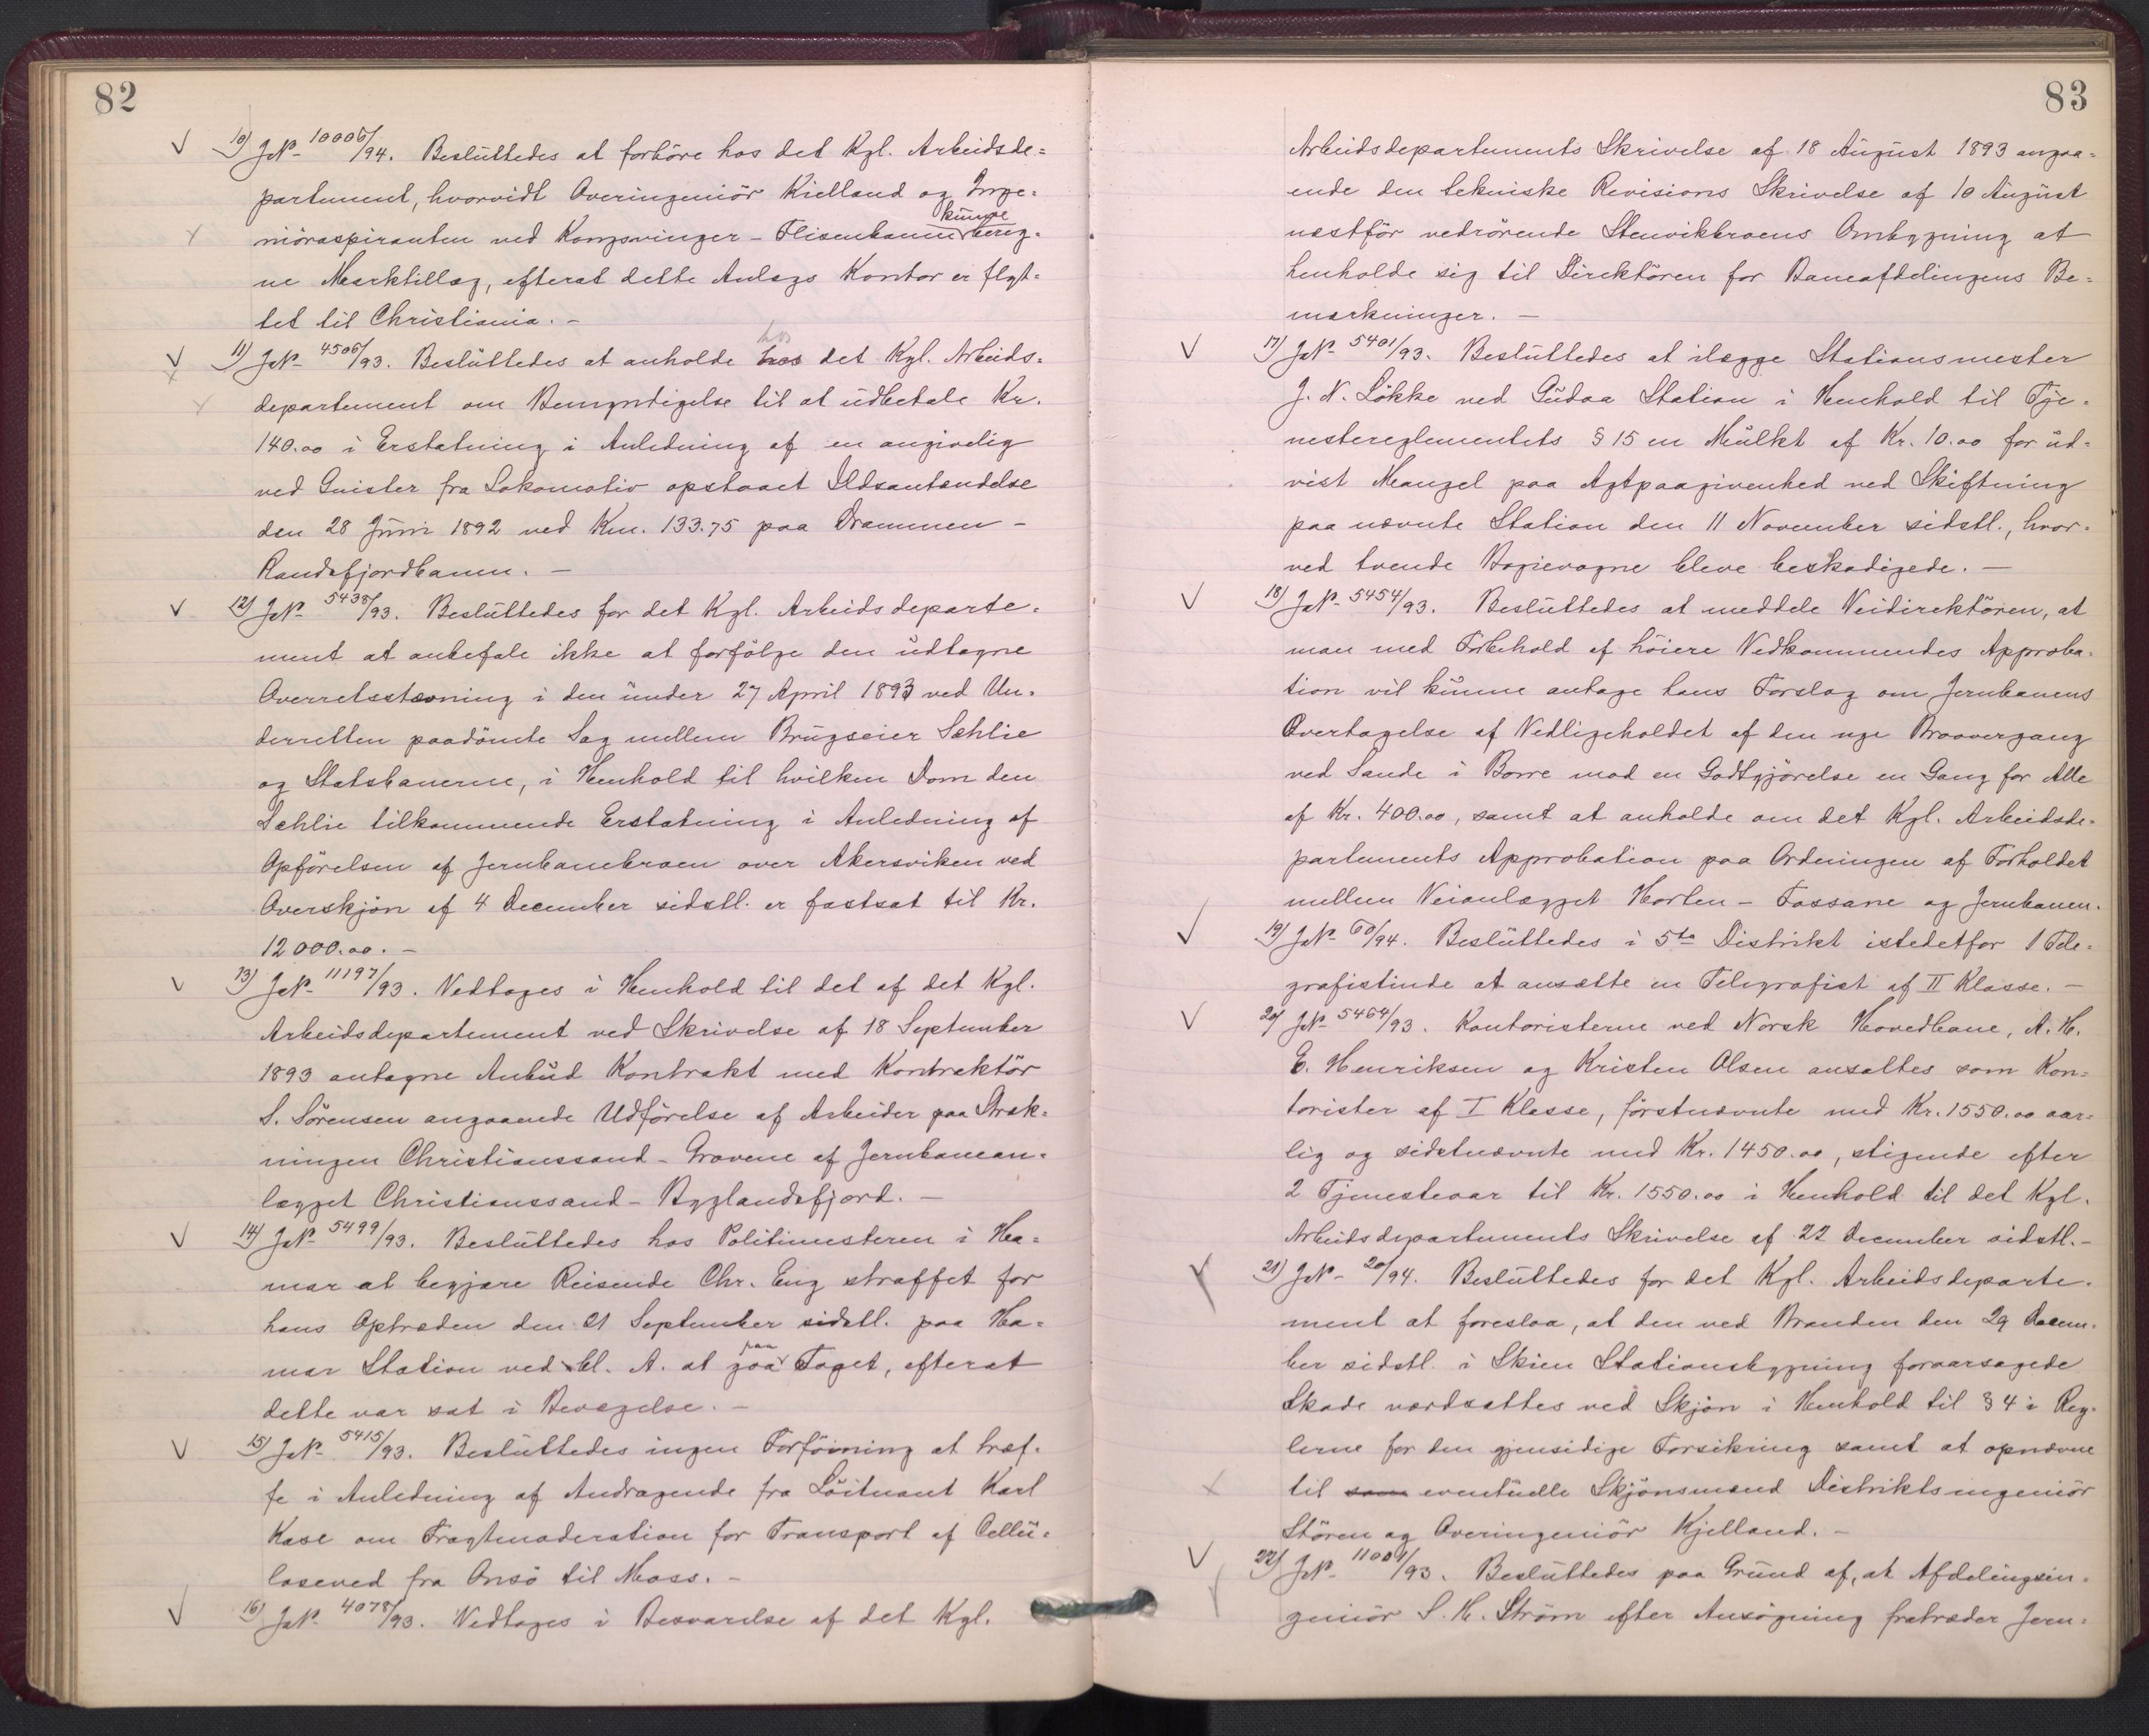 82
10) JN- 10006/94. Besluttedes at forhöre hos det Kgl. Arbeidsde=
partement, hvorvidt Overingeniör Kielland og Inge=
niöraspiranten ved Kongsvinger-Flisenbanen kunne bereg=
ne Marktillæg, efterat dette Anlægs Kontor er flyt=
tet til Christiania. -
11) JN- 4506/93. Besluttedes at anholde hos det Kgl. Arbeids=
departement om Bemyndigelse til at udbetale Kr.
140.00 i Erstatning i Anledning af en angivelig
ved Gnister fra Lokomotiv opstaaet Ildsantændelse
den 28 Juni 1892 ved Km. 133.75 paa Drammen-
Randsfjordbanen. -
12) JN- 5438/93. Besluttedes for det Kgl. Arbeidsdeparte=
ment at anbefale ikke at forfölge den udtagne
Overretsstævning i den under 27 April 1893 ved Un=
derretten paadömte Sag mellem Brugseier Sæhlie
og Statsbanerne, i Henhold til hvilken Dom den
Sæhlie tilkommende Erstatning i Anledning af
Opförelsen af Jernbanebroen over Akersviken ved
Overskjön af 4 December sidstl. er fastsat til Kr.
12000.00. -
13) JN- 11197/93. Vedtoges i Henhold til det af det Kgl.
Arbeidsdepartement ved Skrivelse af 18 September
1893 antagne Anbud Kontrakt med Kontraktör
S. Sörensen angaaende Udförelse af Arbeider paa Stræk=
ningen Christianssand-Grovene af Jernbanean=
lægget Christianssand-Byglandsfjord. -
14) JN- 5499/93. Besluttedes hos Politimesteren i Ha=
mar at begjære Reisende Chr. Eng straffet for
hans Optræden den 21 September sidstl. paa Ha=
mar Station ved bl. A. at gaa paa Toget, efterat
dette var sat i Bevægelse. -
15) JN- 5415/93. Besluttedes ingen Forföining at træf=
fe i Anledning af Andragende fra Löitnant Karl
Kase om Fragtmoderation for Transport af Cellu=
loseved fra Onsö til Moss. -
16) JN- 4078/93. Vedtoges i Besvarelse af det Kgl.
83
Arbeidsdepartements Skrivelse af 18 August 1893 angaa=
ende den tekniske Revisions Skrivelse af 10 August
næstför vedrörende Stenvikbroens Ombygning at
henholde sig til Direktören for Baneafdelingens Be=
mærkninger. -
17) JN- 5401/93. Besluttedes at ilægge Stationsmester
J. N. Lökke ved Gudaa Station i Henhold til Tje=
nestereglementets § 15 en Mulkt af Kr. 10.00 for ud=
vist Mangel paa Agtpaagivenhed ved Skiftning
paa nævnte Station den 11 November sidstl., hvor=
ved tvende Bogievogne bleve beskadigede. -
18) JN- 5454/93. Besluttedes at meddele Veidirektören, at
man med Forbehold af höiere Vedkommendes Approba=
tion vil kunne antage hans Forslag om Jernbanens
Overtagelse af Vedligeholdet af den nye Broovergang
ved Sande i Borre mod en Godtgjörelse en Gang for Alle
af Kr. 400.00, samt at anholde om det Kgl. Arbeidsde=
partements Approbation paa Ordningen af Forholdet
mellem Veianlægget Horten-Fossane og Jernbanen.
19) JN- 60/94. Besluttedes i 5te Distrikt istedetfor 1 Tele=
grafistinde at ansætte en Telegrafist af II Klasse. -
20) JN- 5464/93. Kontoristerne ved Norsk Hovedbane, A. H.
E. Henriksen og Kristen Olsen ansattes som Kon=
torister af I Klasse, förstnævnte med Kr. 1550.00 aar=
lig og sidstnævnte med Kr. 1450.00, stigende efter
2 Tjenesteaar til Kr. 1550.00 i Henhold til det Kgl.
Arbeidsdepartements Skrivelse af 22 December sidstl. -
21) JN- 20/94. Besluttedes for det Kgl. Arbeidsdeparte=
ment at foreslaa, at den ved Branden den 29 Decem=
ber sidstl. i Skien Stationsbygning foraarsagede
Skade værdsattes ved Skjön i Henhold til § 4 i Reg=
lerne for den gjensidige Forsikring samt at opnævne
til som eventuelle Skjönsmænd Distriktsingeniör
Stören og Overingeniör Kjelland. -
22) JN- 11009/93. Besluttedes paa Grund af, at Afdelingsin=
geniör S. H. Ström efter Ansögning fratræder Jern=